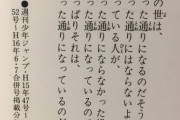 の世は、
った通りになるのだそう
った通りにはならないよ
っている人が、
った通りにならなかった
っぱりそれは、
った通りになっているの
●週刊少年ジャンプ・H15年47号
52号〜H16年6・7合併号掲載分